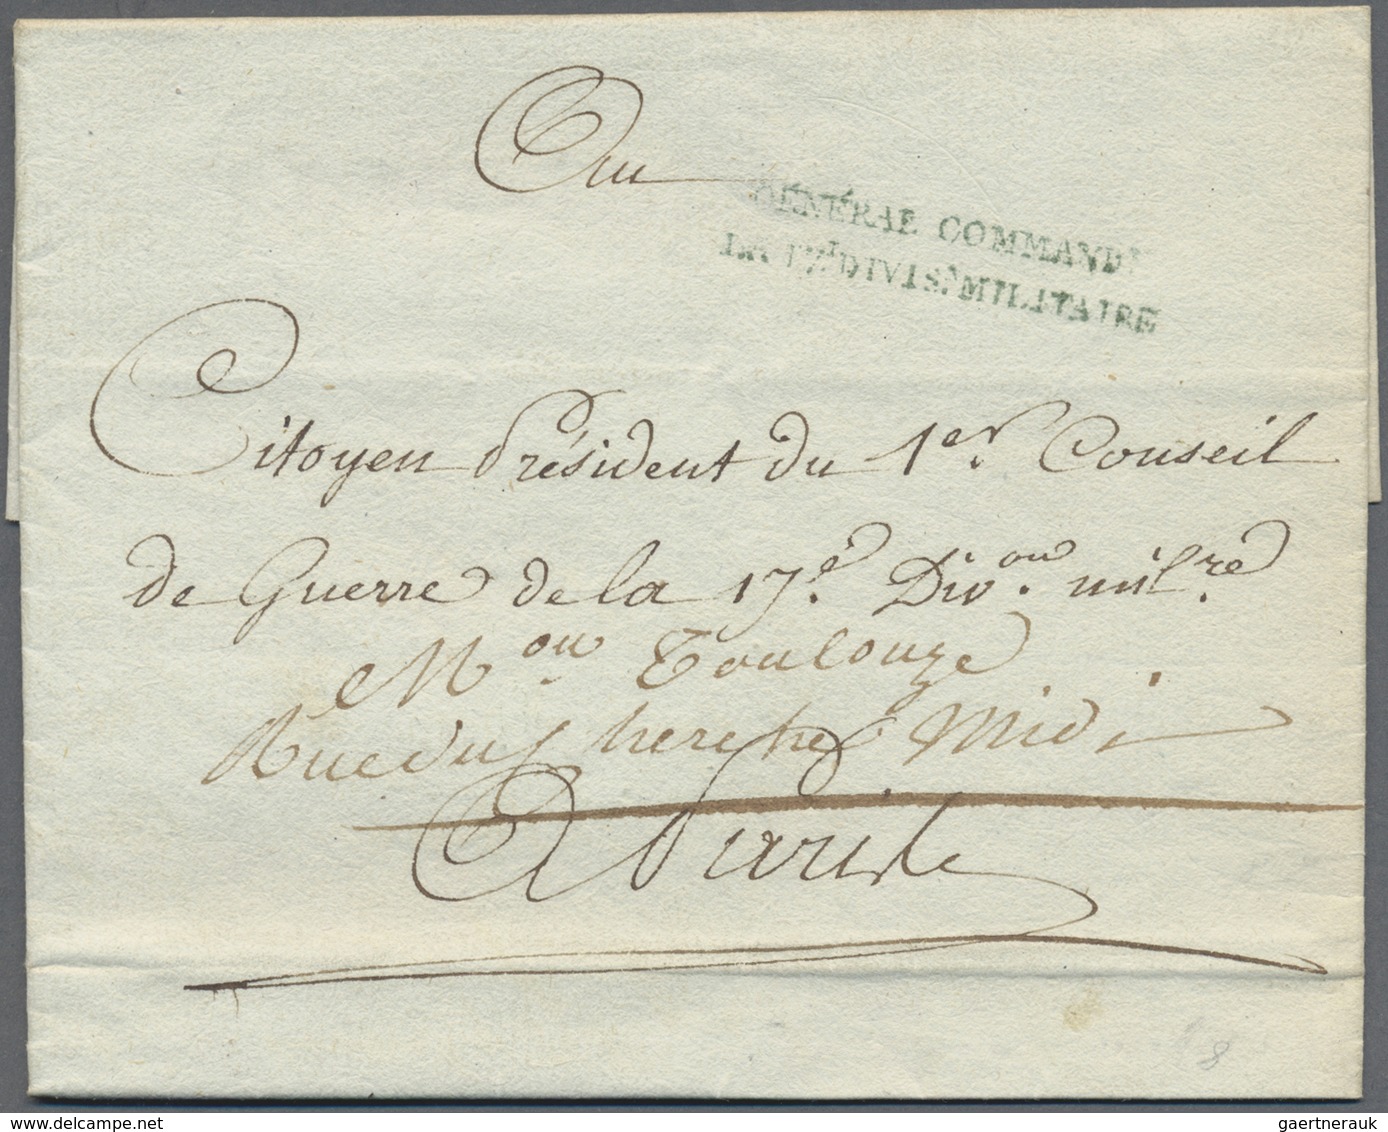 Au
GÉNÉRAL COMMAND.t
LA 17.e DIVIS.n MILITAIRE
Citoyen Président du 1er. Conseil
de Guerre de la 17.e Div.on mil.re
M.on Toulouze
Rue du Cherche Midi
A Paris
8
www.delcampe.net
gaertnerauk